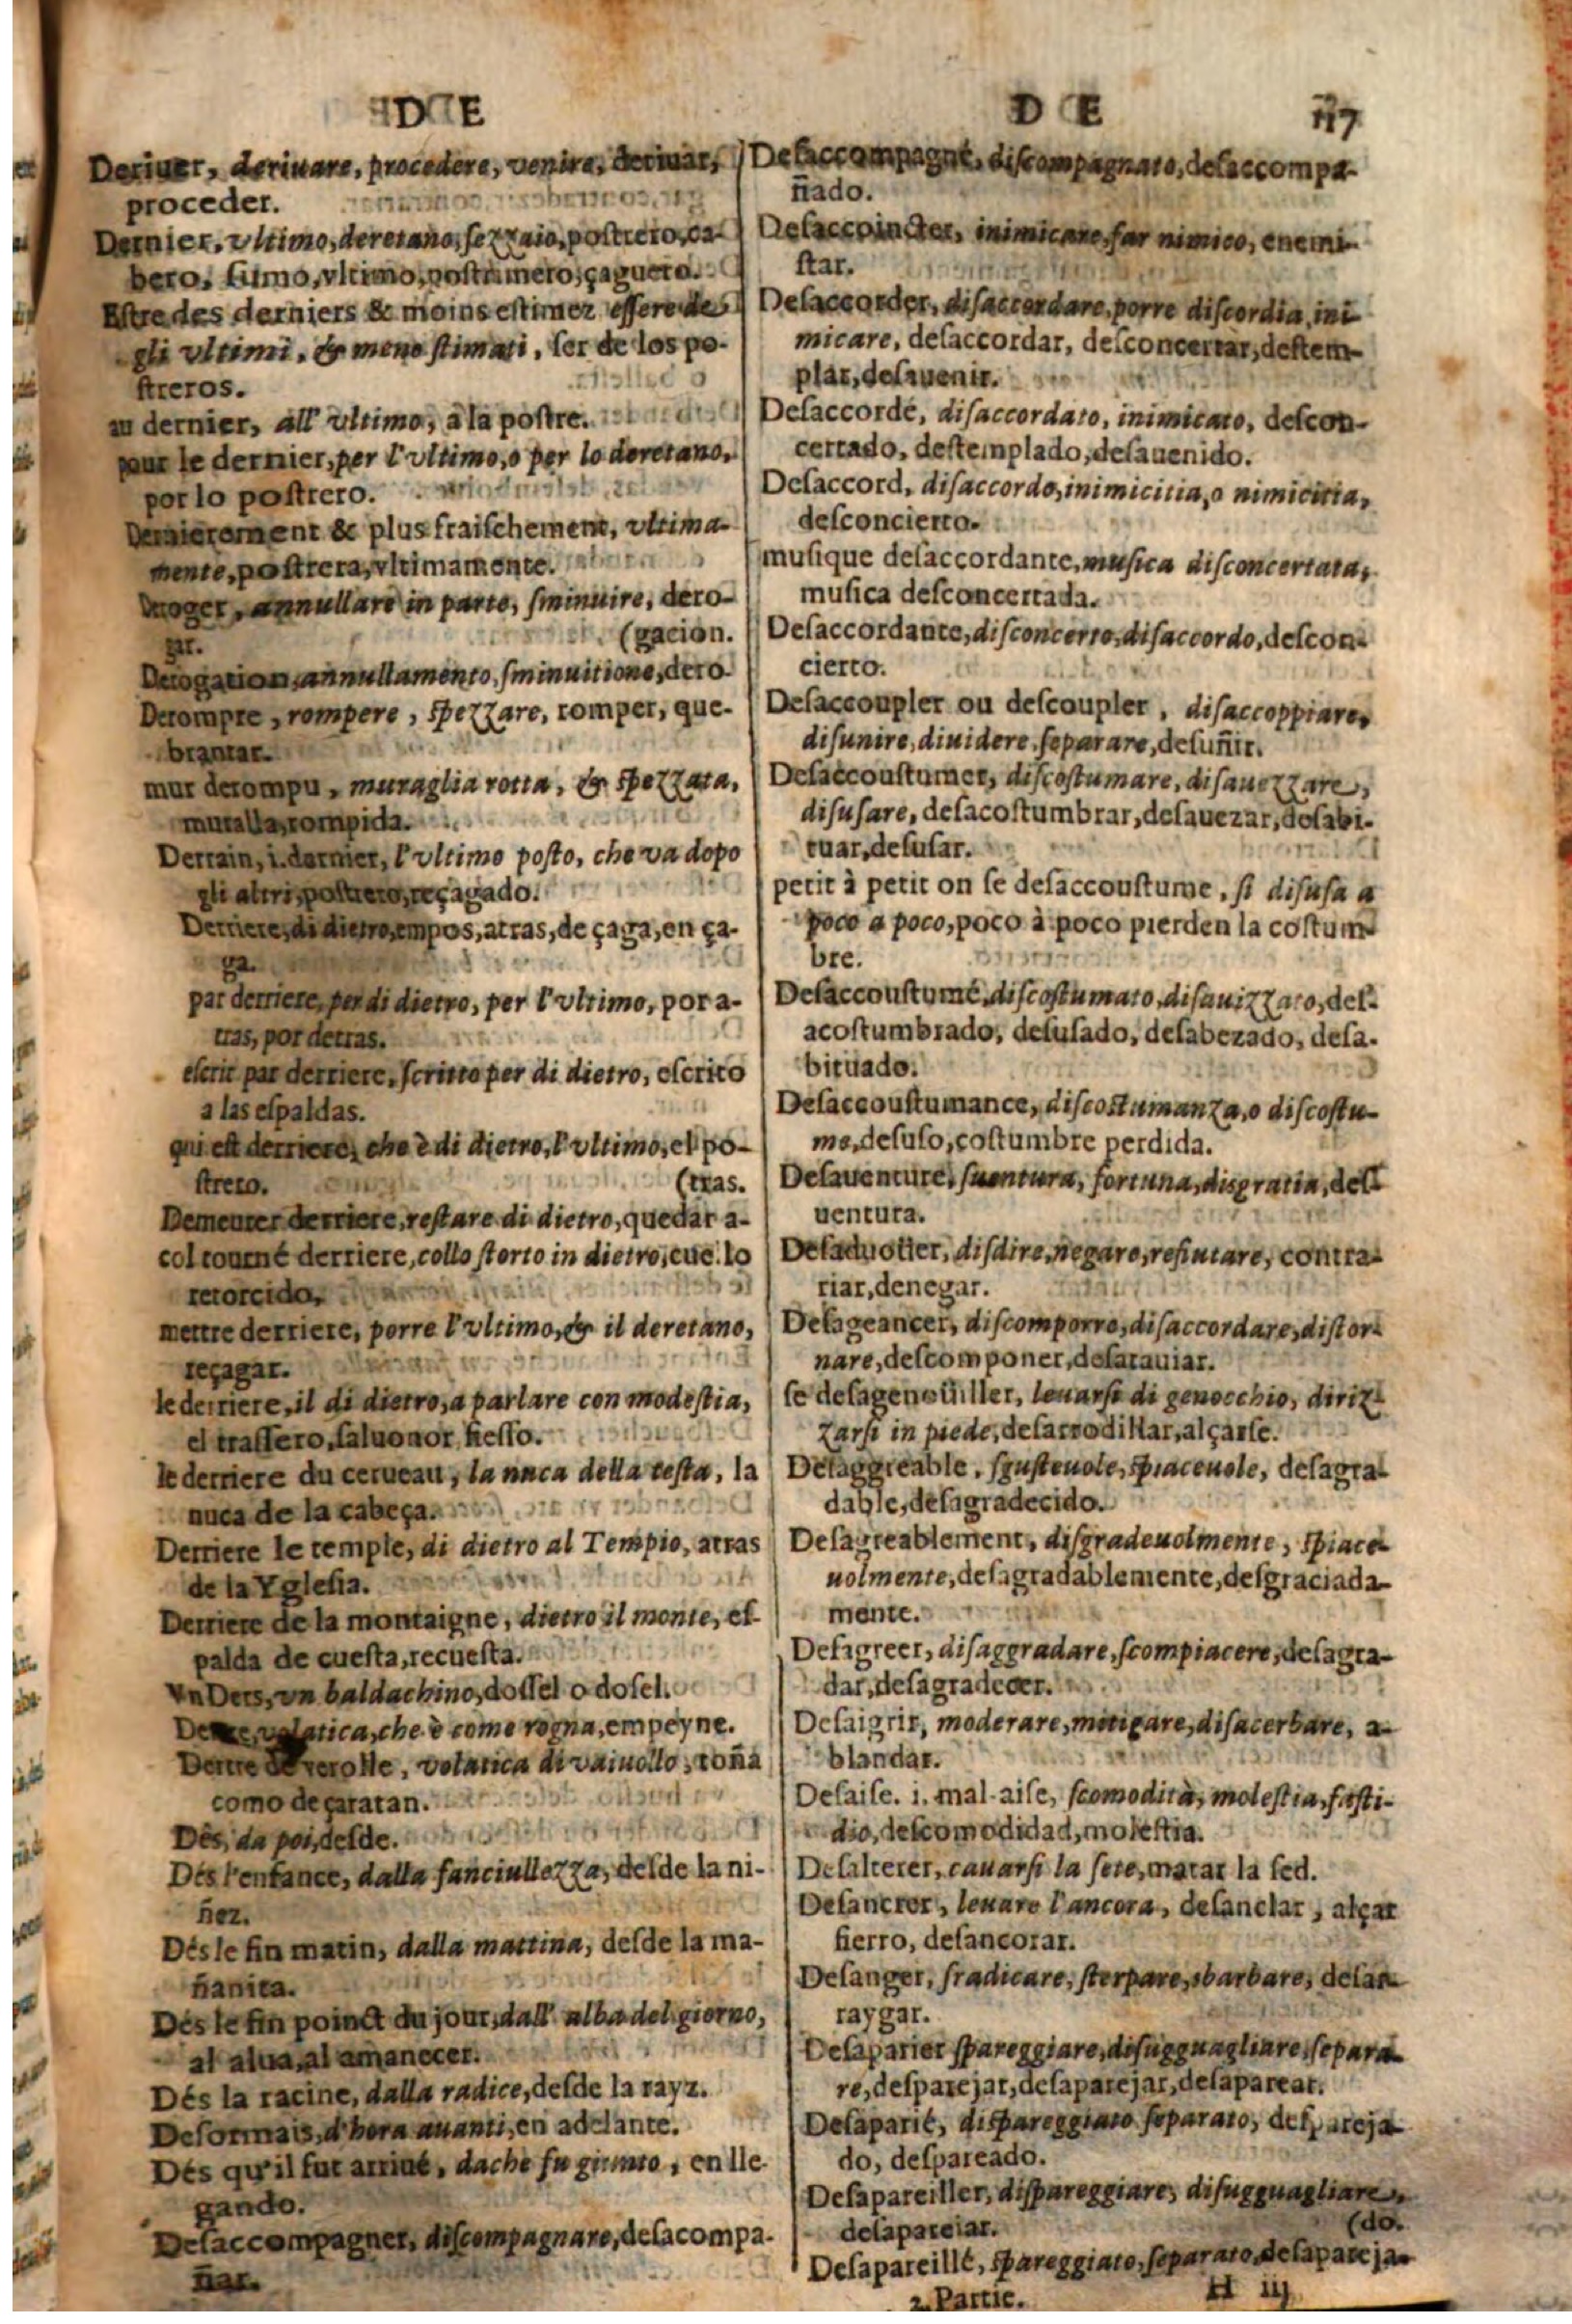 D E
Deriuer, deriuare, procedere, venire, deriuar,
proceder.
Dernier, vltimo, deretano, sezzaio, postrero, ca-
bero, sumo, vltimo, postrimero, çaguero.
Estre des derniers & moins estimez essere de
gli vltimi, & meno stimati, ser de los po-
streros.
au dernier, all' vltimo, à la postre.
pour le dernier, per l'vltimo, o per lo deretano,
por lo postrero.
Dernierement & plus fraischement, vltima-
mente, postrera, vltimamente.
Deroger, annullare in parte, sminuire, dero-
gar. (gacion.
Derogation, annullamento, sminuitione, dero-
Derompre, rompere, spezzare, romper, que-
brantar.
mur derompu, muraglia rotta, & spezzata,
muralla, rompida.
Derrain, i. dernier, l'vltimo posto, che va dopo
gli altri, postrero, reçagado.
Derriere, di dietro, empos, atras, de çaga, en ça-
ga.
par derriere, per di dietro, per l'vltimo, por a-
tras, por detras.
escrit par derriere, scritto per di dietro, escrito
a las espaldas.
qui est derriere, che è di dietro, l'vltimo, el po-
strero. (tras.
Demeurer derriere, restare di dietro, quedar a-
col tourné derriere, collo storto in dietro, cuello
retorcido,
mettre derriere, porre l'vltimo, & il deretano,
reçagar.
le derriere, il di dietro, a parlare con modestia,
el trassero, saluonor, siesso.
le derriere du cerueau, la nuca della testa, la
nuca de la cabeça.
Derriere le temple, di dietro al Tempio, atras
de la Yglesia.
Derriere de la montaigne, dietro il monte, es-
palda de cuesta, recuesta.
Vn Ders, vn baldachino, dossel o dosel.
che è come rogna, empeyne.
Dertre de verolle, volatica di vaiuollo, roña
como de çaratan.
Dés, da poi, desde.
Dés l'enfance, dalla fanciullezza, desde la ni-
ñez.
Dés le fin matin, dalla mattina, desde la ma-
ñanita.
Dés le fin poinct du jour, dall' alba del giorno,
al alua, al amanecer.
Dés la racine, dalla radice, desde la rayz.
Desormais, d'hora auanti, en adelante.
Dés qu'il fut arriué, dache fu giunto, en lle-
gando.
Desaccompagner, discompagnare, desacompa-
ñar.
D E 117
Desaccompagné, discompagnato, desaccompa-
ñado.
Desaccoincter, inimicare, far nimico, enemi-
star.
Desaccorder, disaccordare, porre discordia, ini-
micare, desaccordar, desconcertar, destem-
plar, desauenir.
Desaccordé, disaccordato, inimicato, descon-
certado, destemplado, desauenido.
Desaccord, disaccordo, inimicitia, o nimicitia,
desconcierto.
musique desaccordante, musica disconcertata,
musica desconcertada.
Desaccordante, disconcerto, disaccordo, descon-
cierto.
Desaccoupler ou descoupler, disaccoppiare,
disunire, diuidere, separare, desuñir.
Desaccoustumer, discostumare, disauezzare,
disusare, desacostumbrar, desauezar, desabi-
tuar, desusar.
petit à petit on se desaccoustume, si disusa a
poco a poco, poco à poco pierden la costum-
bre.
Desaccoustumé, discostumato, disauizzato, des-
acostumbrado, desusado, desabezado, desa-
bituado.
Desaccoustumance, discostumanza, o discostu-
me, desuso, costumbre perdida.
Desauenture, suentura, fortuna, disgratia, des-
uentura.
Desaduoüer, disdire, negare, refiutare, contra-
riar, denegar.
Desageancer, discomporre, disaccordare, distor-
nare, descomponer, desatauiar.
se desagenoüiller, leuarsi di genocchio, diriz-
zarsi in piede, desarrodillar, alçarse.
Desaggreable, sgusteuole, spiaceuole, desagra-
dable, desagradecido.
Desagreablement, disgradeuolmente, spiace-
uolmente, desagradablemente, desgraciada-
mente.
Desagreer, disaggradare, scompiacere, desagra-
dar, desagradecer.
Desaigrir, moderare, mitigare, disacerbare, a-
blandar.
Desaise. i. mal-aise, scomodità, molestia, fasti-
dio, descomodidad, molestia.
Desalterer, cauarsi la sete, matar la sed.
Desancrer, leuare l'ancora, desanclar, alçar
fierro, desancorar.
Desanger, sradicare, sterpare, sbarbare, desar-
raygar.
Desaparier spareggiare, disugguagliare, separa-
re, desparejar, desaparejar, desaparear.
Desaparié, dispareggiato separato, despareja-
do, despareado.
Desapareiller, dispareggiare, disugguagliare,
desapareiar. (do.
Desapareillé, spareggiato, separato, desapareja-
2. Partie. H iij